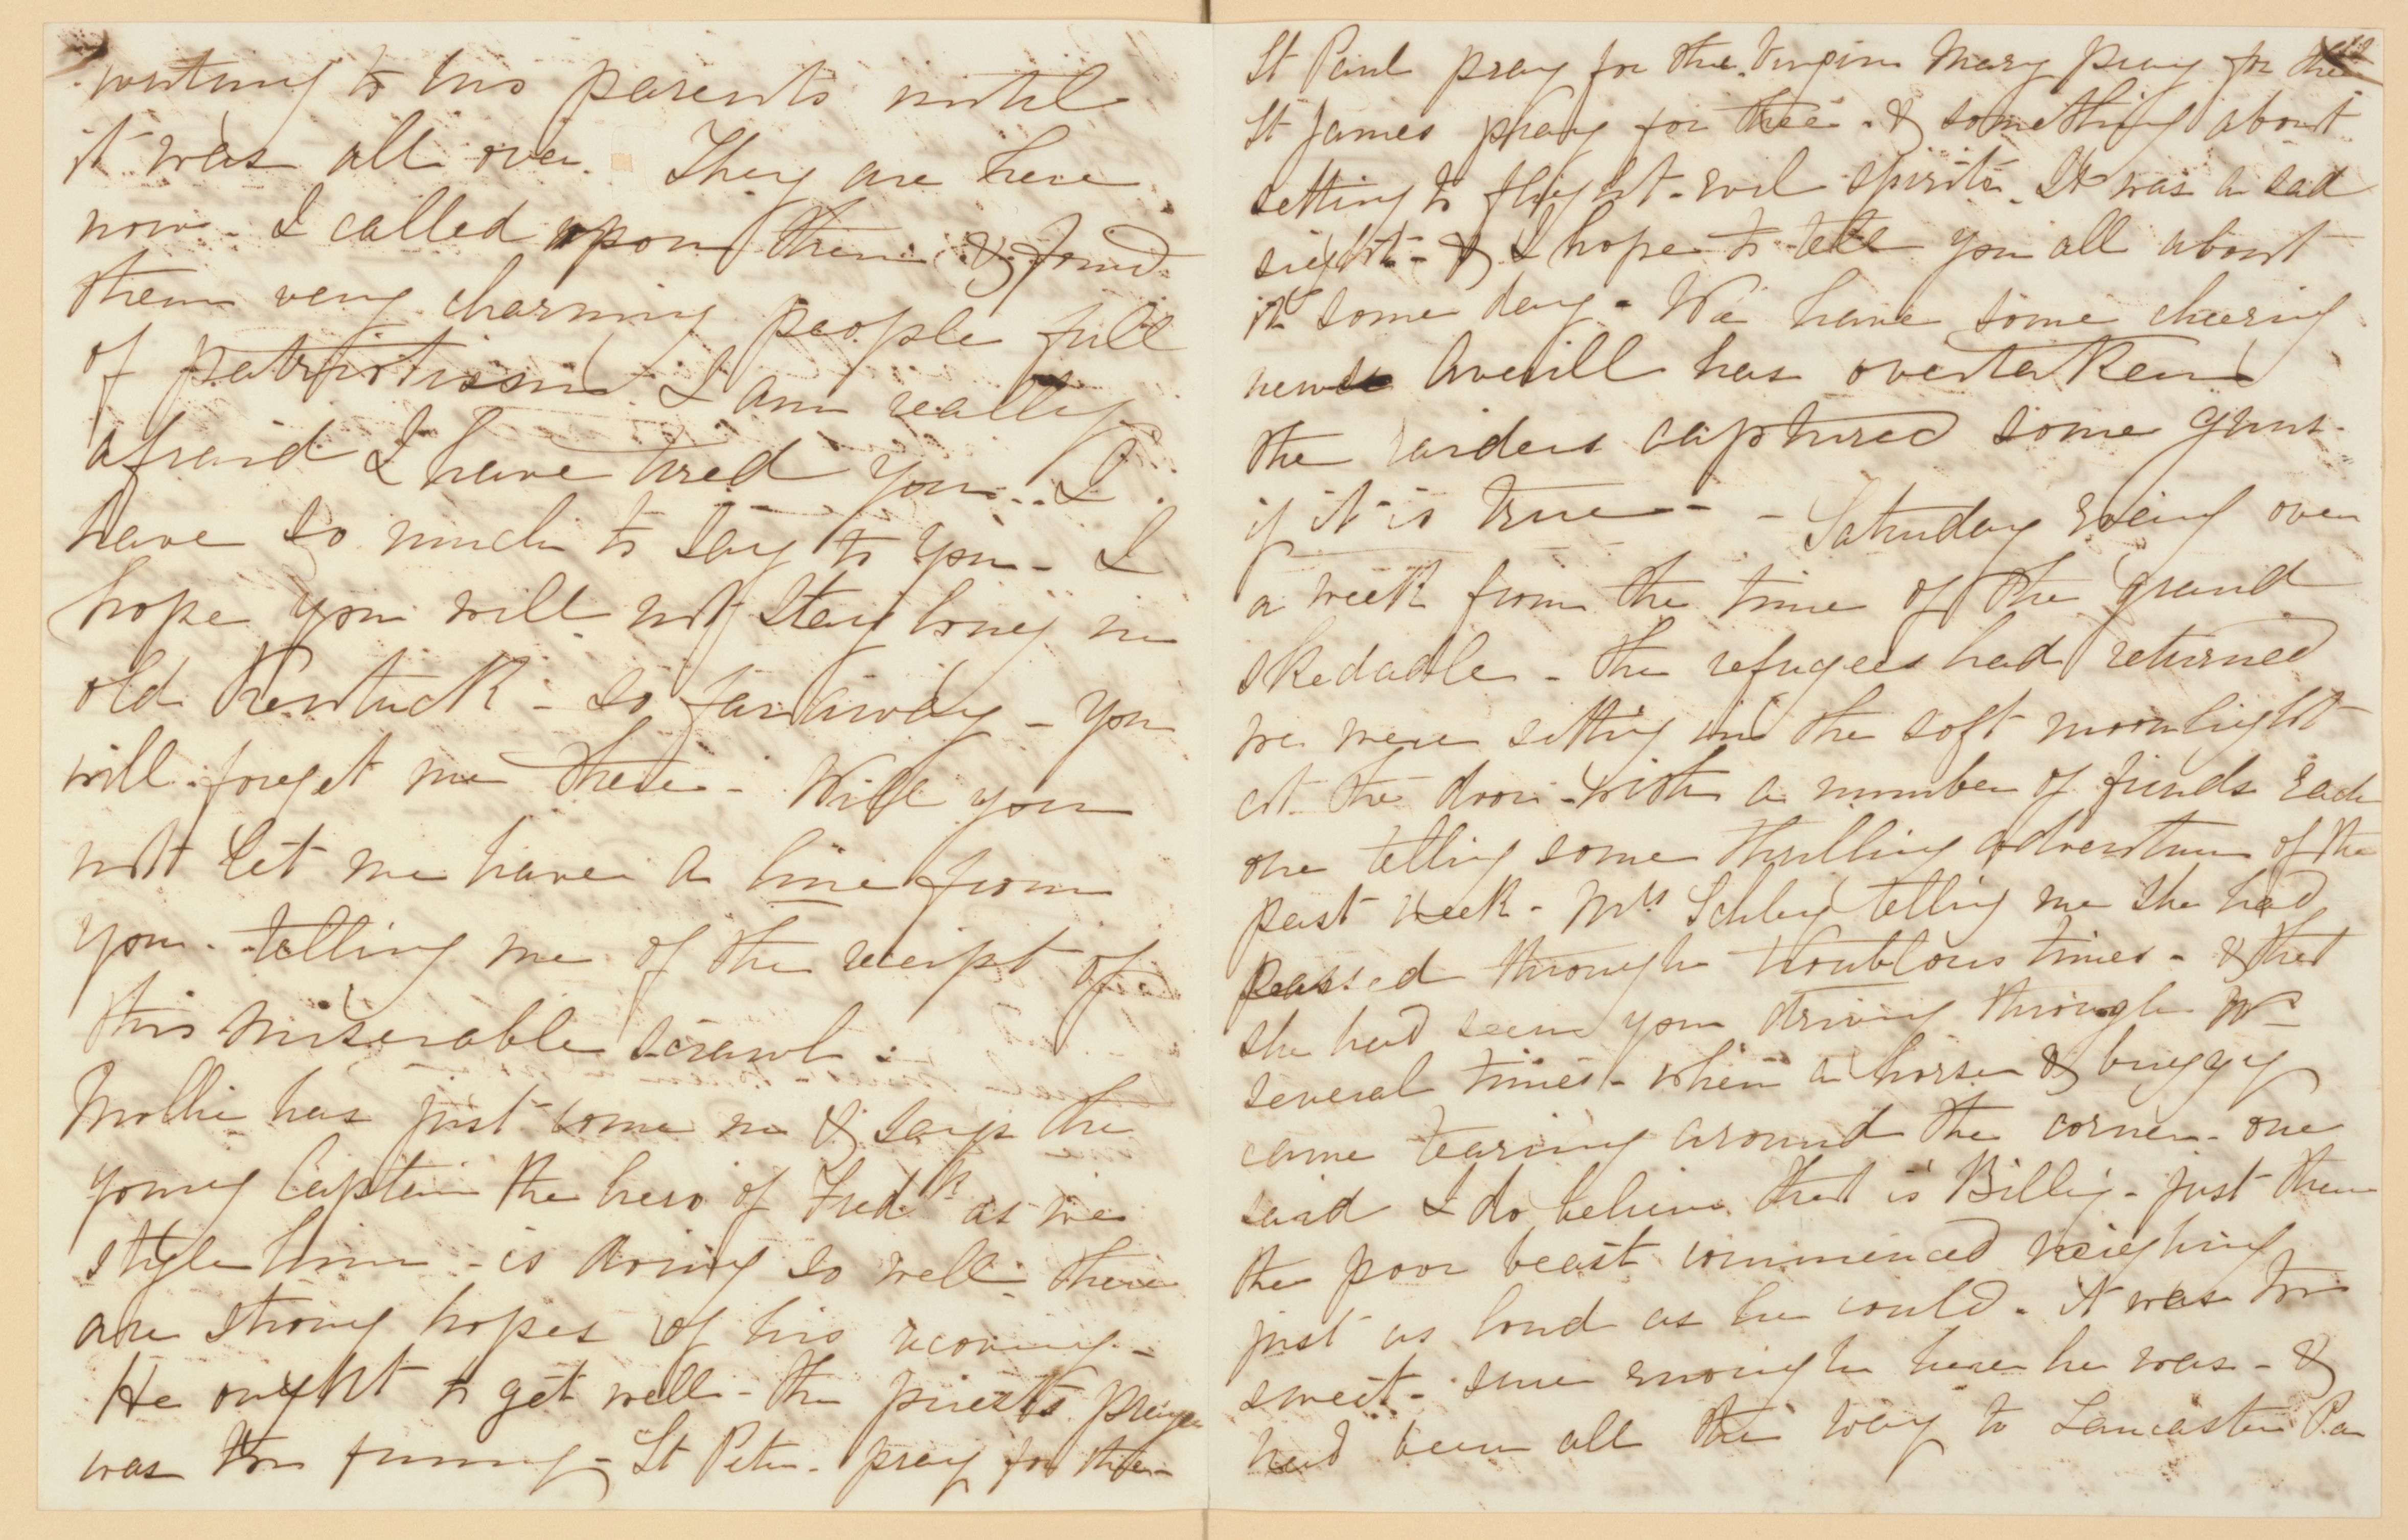 writing to his parents until
it was all over. They are here
now - I called upon them & found
them very charming people full
of patriotissm. I am really
afraid I have tired you - I
have so much to say to you - I
hope you will not stay long in
old Kentuck - so far away - you
will forget me there - Will you
not let me have a line from
you - telling me of the receipt of
this miserable scrawl -
Mollie has just come in & says the
young Captain the hero of Fredk as we
style him - is doing so well there
are strong hopes of his recovery -
He ought to get well - the priests prayer
was too funny - St Peter - pray for thee -
St Paul pray for thee Virgin Mary pray for thee
St James pray for thee - & something about
setting to flight - evil spirits. It was a sad
sight - & I hope to tell you all about
it some day - We have some cheering
news Averill has overtaken
the raiders captured some guns -
if it is true - - Saturday eveing over
a week from the time of the grand
skedadle - the refugees had returned
we were sitting in the soft moonlight
at the door - with a number of friends each
one telling some thrilling adventure of the
past week - Mrs Schley telling me she had
passed through troublous times - & that
she had seen you driving through
several times - when a horse & buggy
came tearing around the corner - one
said I do believe that is Billy - just then
the poor beast commenced neighing
just as loud as he could - it was too
sweet - sure enough here he was - &
had been all the way to Lancaster Pa